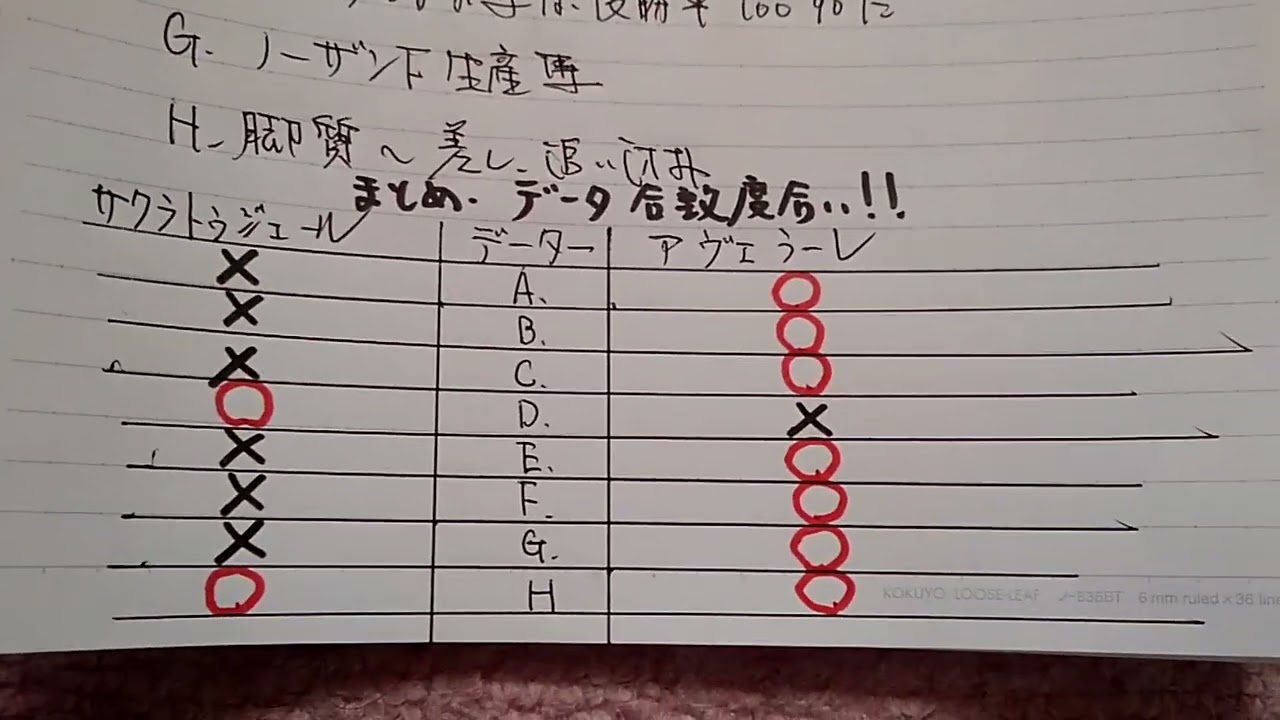 100%に
G. ノーザンF生産馬
H. 脚質〜差し、追い込み
まとめ. データ合致度合い!!
サクラトゥジュール データー アヴェラーレ
× A. ○
× B. ○
× C. ○
○ D. ×
× E. ○
× F. ○
× G. ○
○ H ○
KOKUYO LOOSE-LEAF ノ-836BT 6 mm ruled × 36 line